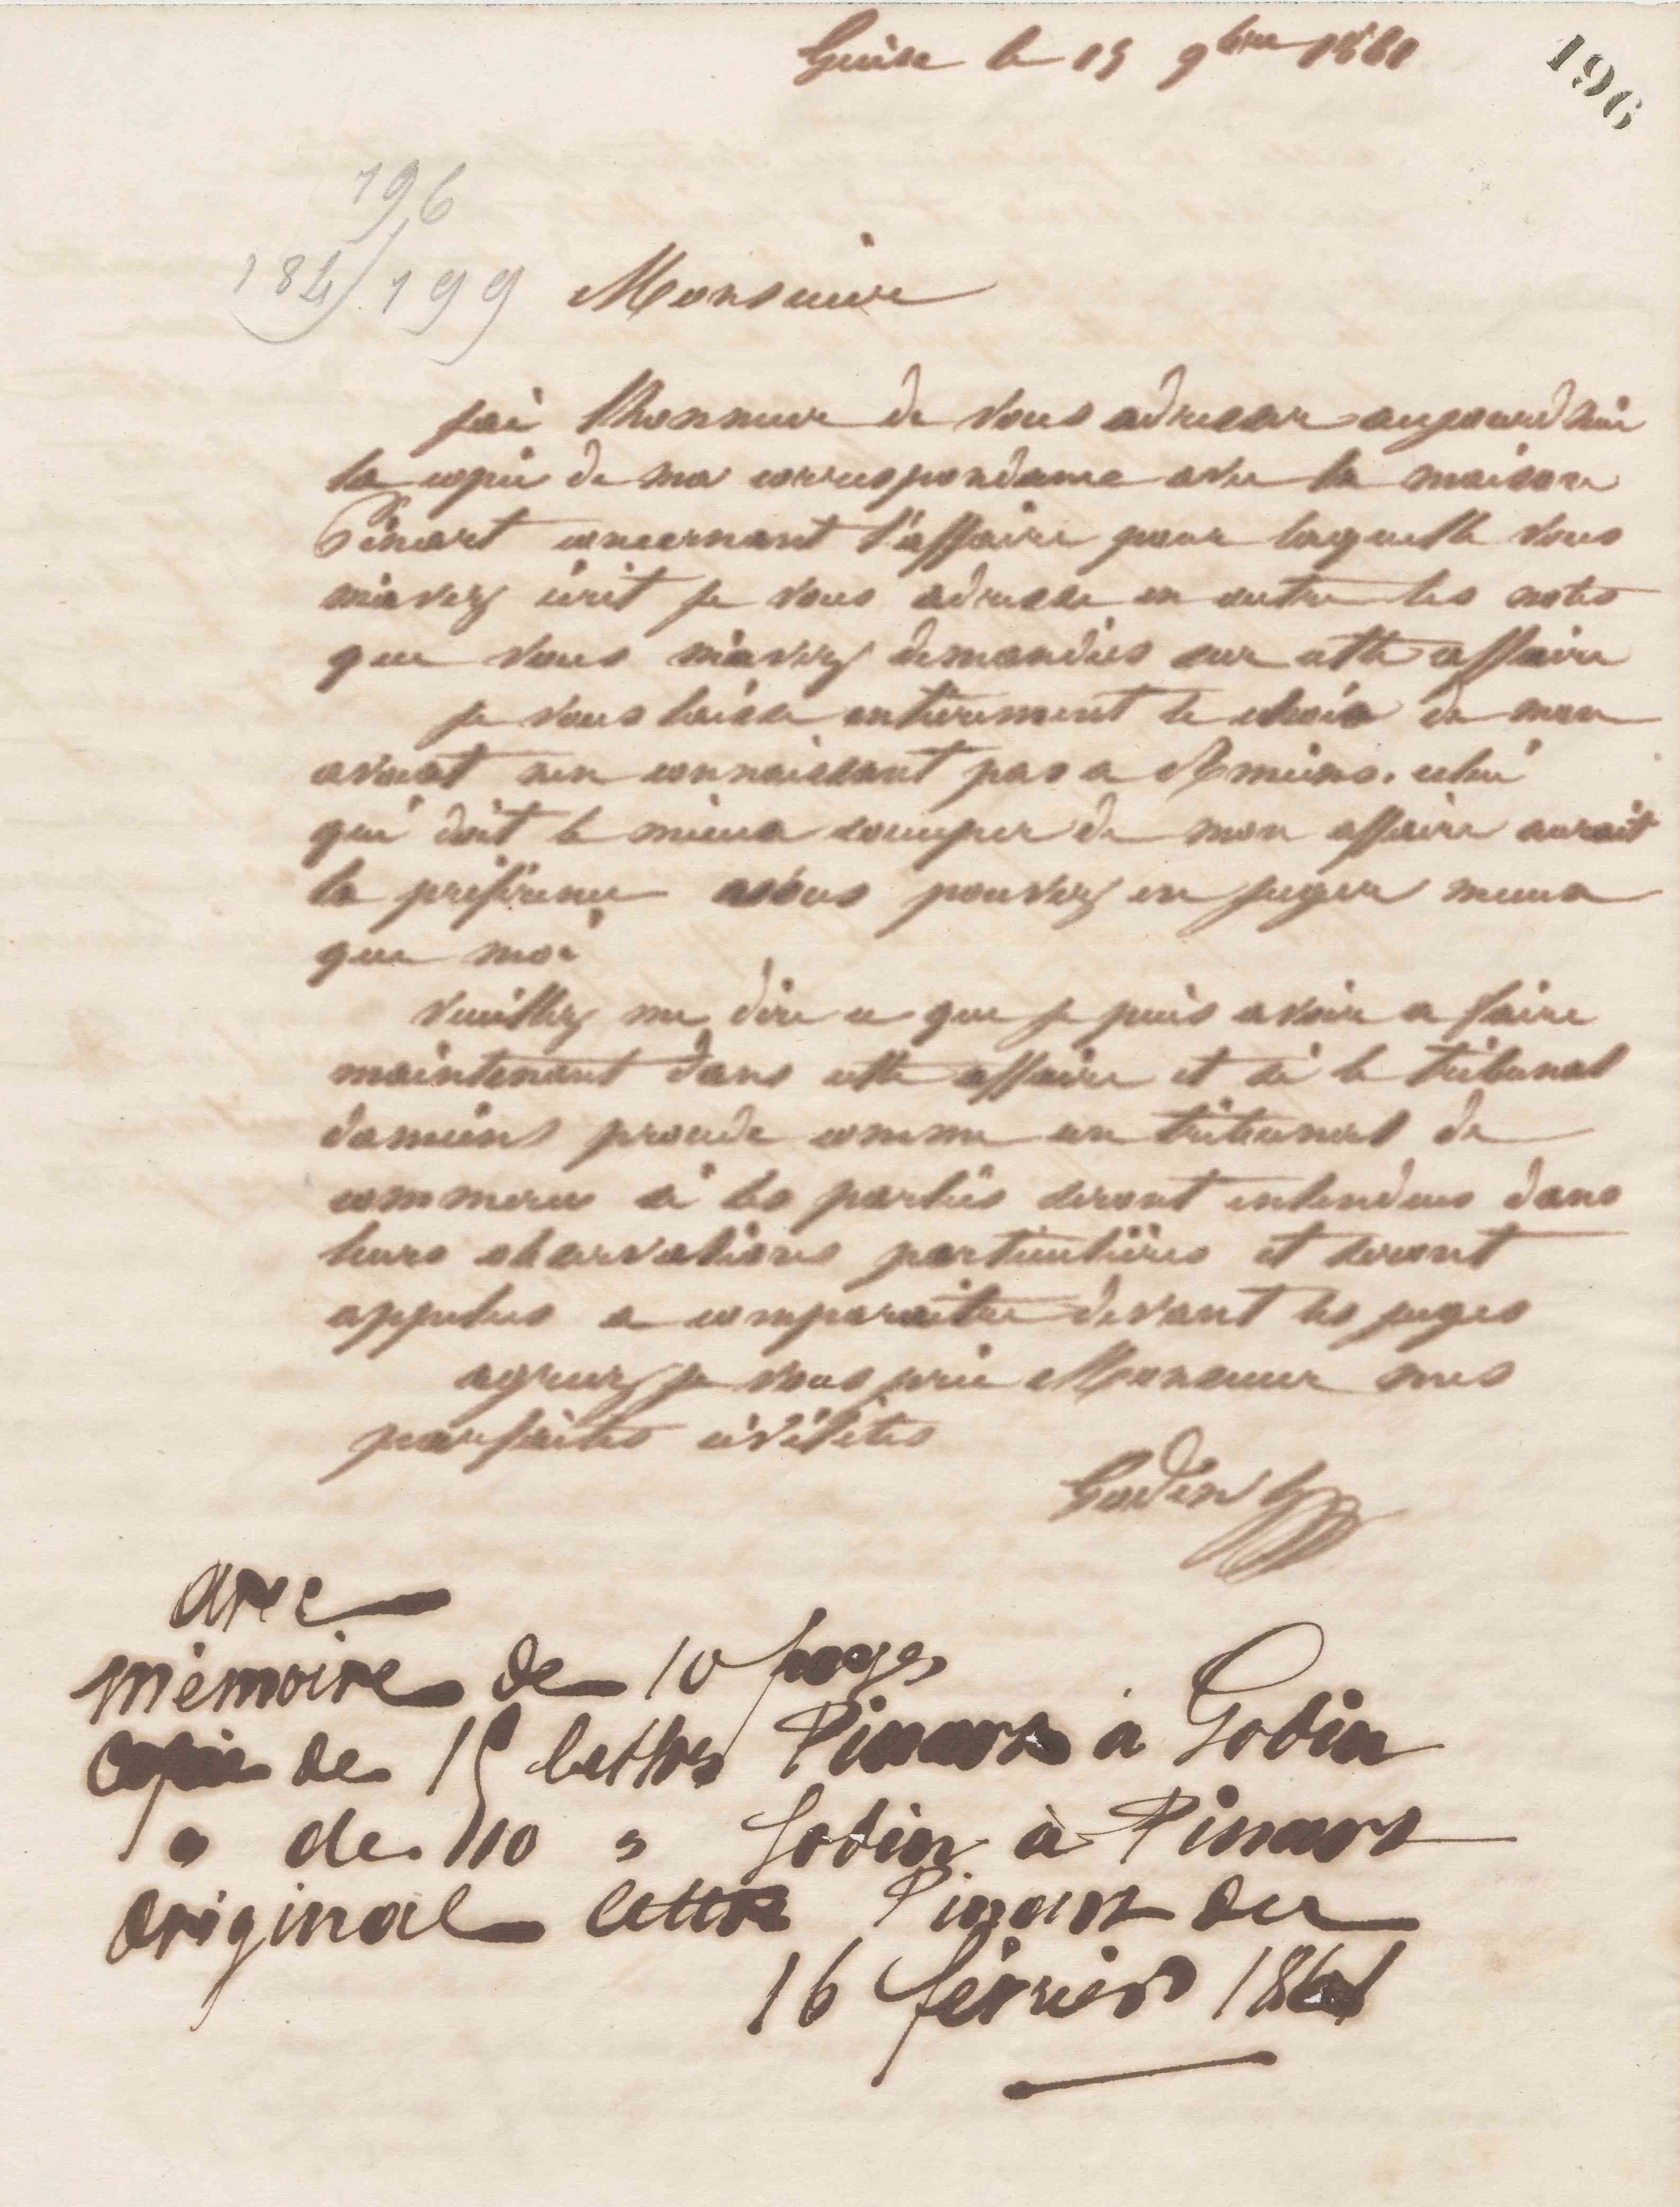 Guise le 15 9bre 1861
196
196
184/199
Monsieur
jai lhonneur de vous adresser aujourdhui
la copie de ma correspondance avec la maison
Pinart concernant l'affaire pour laquelle vous
m'avez écrit je vous adresse en outre les notes
que vous m'avez demandées sur cette affaire
je vous laisse entièrement le choix de mon
avocat nen connaissant pas a Amiens. celui
qui doit le mieux soccuper de mon affaire aurait
la préférence vous pouvez en juger mieux
que moi
veuillez me dire ce que je puis avoir a faire
maintenant dans cette affaire et si le tribunal
damiens procede comme un tribunal de
commerce si les parties seront entendues dans
leurs observations particulières et seront
appelées a comparaitre devant les juges
agréez je vous prie Monsieur mes
parfaites civilités
Godin
avec
mémoire de 10 pages
copie de 15 lettres Pinart à Godin
" de 10 " Godin à Pinart
original lettre Pinart du
16 février 1861